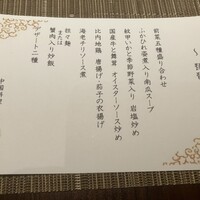 前菜五種盛り合わせ
ふかひれ姿煮入り南瓜スープ
紋甲いかと季節野菜入り 岩塩炒め
国産牛と舞茸 オイスターソース炒め
比内地鶏 唐揚げ・茄子の衣揚げ
海老チリソース煮
担々麺
または
蟹肉入り炒飯
デザート二種
中国料理